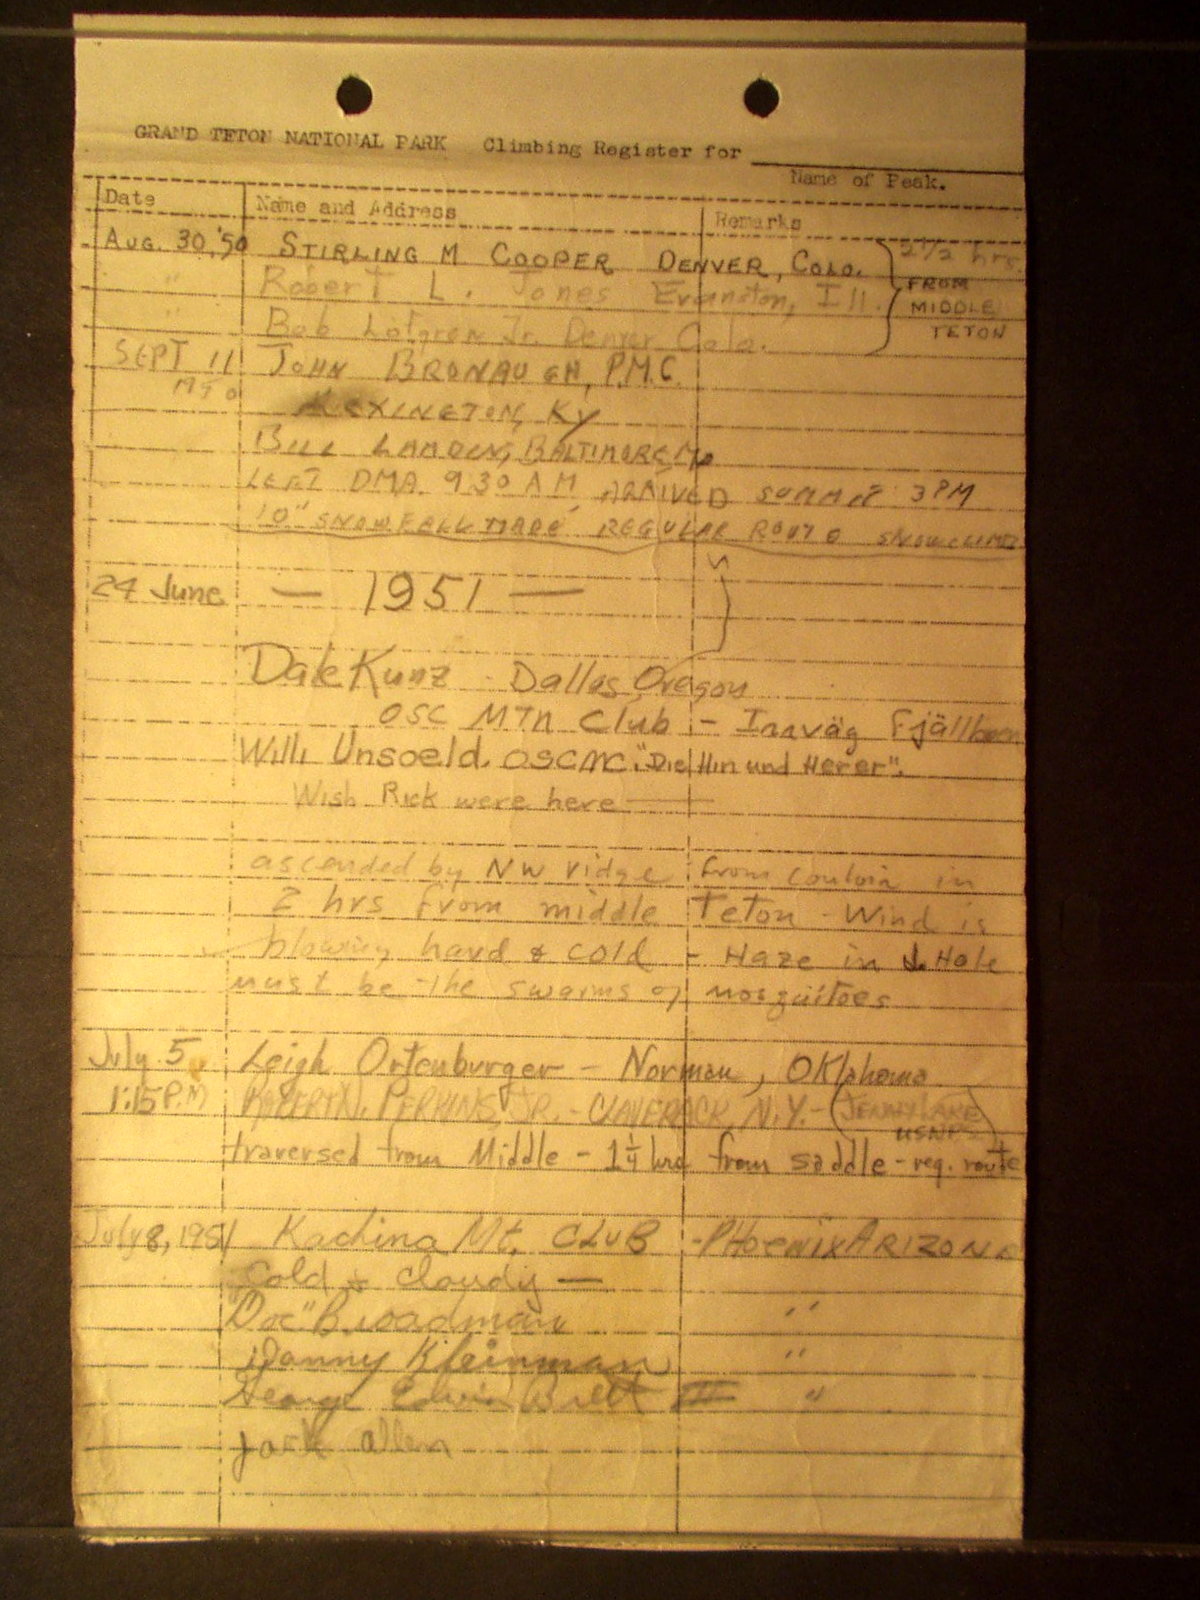 GRAND TETON NATIONAL PARK Climbing Register for
Name of Peak.
Date Name and Address Remarks
AUG. 30, '50 STIRLING M. COOPER DENVER, COLO. 2 1/2 hrs.
" Robert L. Jones Evanston, Ill. FROM MIDDLE
" Bob Lofgren Jr. Denver Colo. TETON
SEPT 11 JOHN BRONAUGH, P.M.C.
1950 LEXINGTON, KY
BILL BALTIMORE, MD
LEFT DMA 930 AM, ARRIVED SUMMIT 3 PM
10" SNOWFALL MADE REGULAR ROUTE SNOWCLIMB
24 June — 1951 —
Dale Kunz - Dallas, Oregon
OSC MTN Club - Fjällbom
Willi Unsoeld. OSCMC. "Die Hin und Herer".
Wish Rick were here —
ascended by NW ridge from couloir in
2 hrs from middle Teton - Wind is
blowing hard & cold - Haze in J. Hole
must be the swarms of mosquitoes
July 5 Leigh Ortenburger - Norman, Oklahoma
1:15 P.M. ROBERT W. PERKINS, JR. - CLAVERACK, N.Y. - (JENNY LAKE
USNPS)
traversed from Middle - 1 1/4 hrs from saddle - reg. route
July 8, 1951 Kachina Mt. CLUB - PHOENIX ARIZONA
Cold & Cloudy —
"Doc" Broadman "
Danny Kleinman "
George Edwin III "
Jack Allen